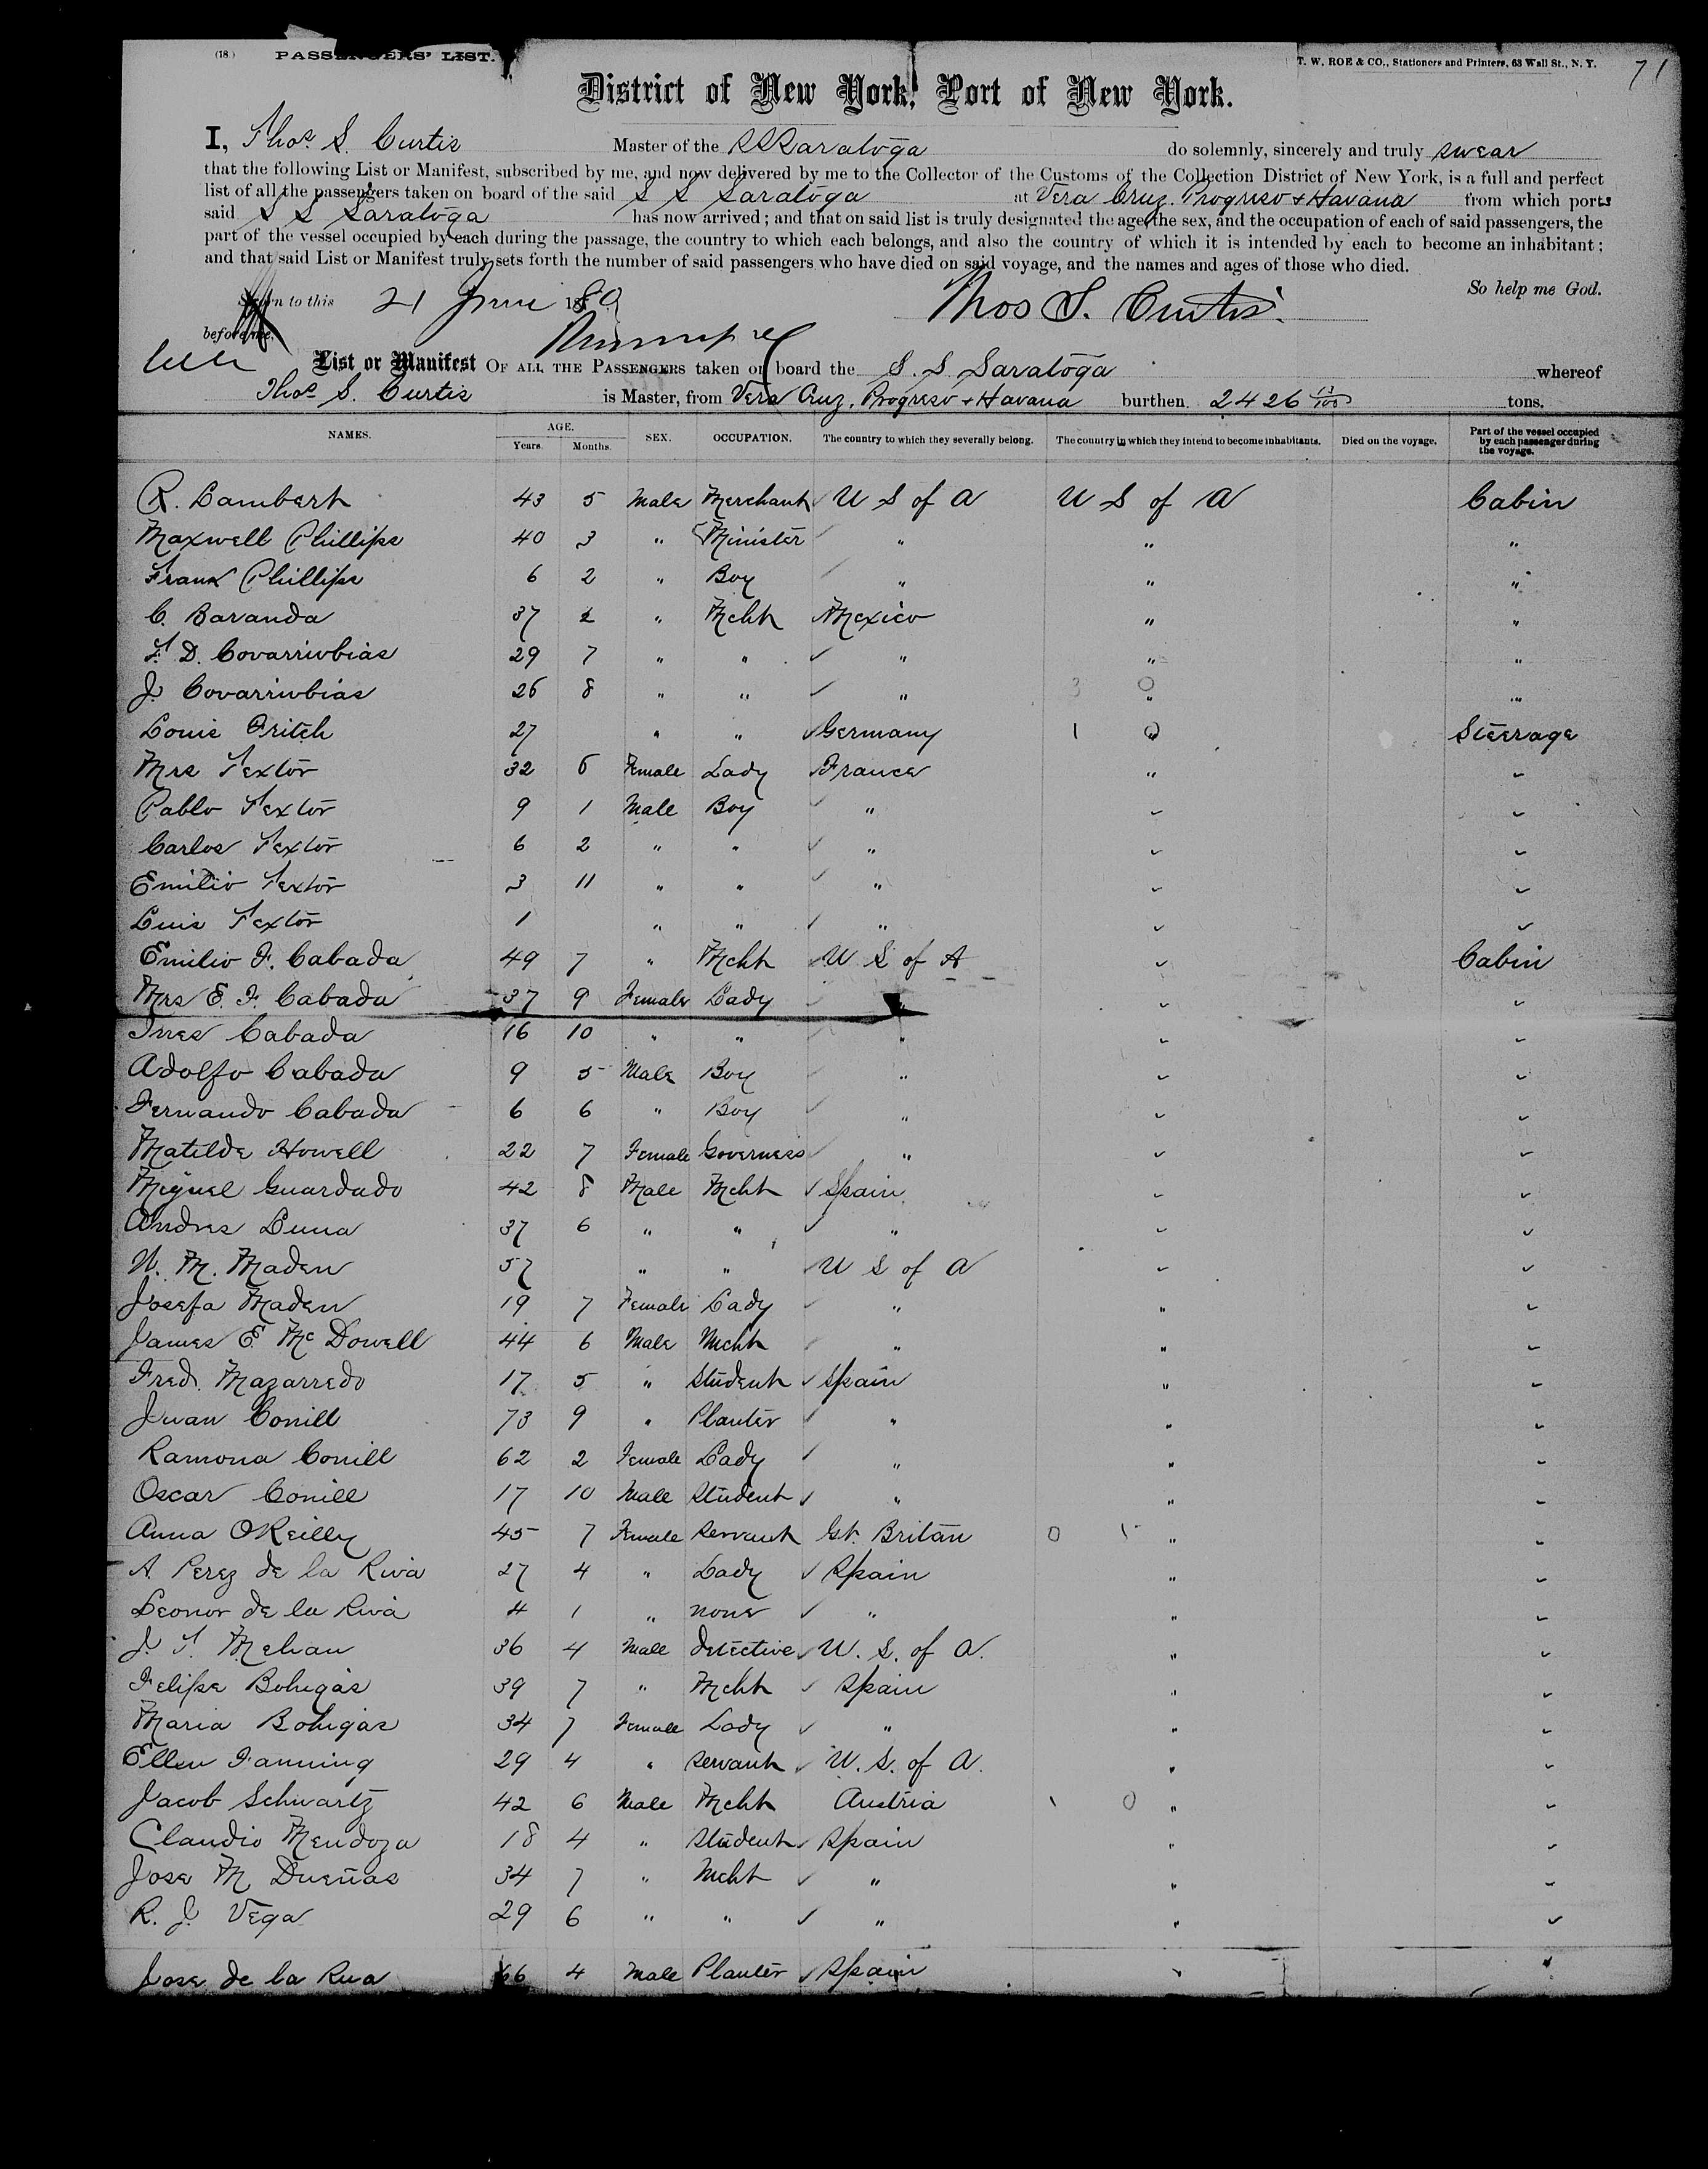 (18) PASSENGERS' LIST. T. W. ROE & CO., Stationers and Printers, 63 Wall St., N. Y. 71
District of New York, Port of New York.
I, Thos. S. Curtis Master of the SS Saratoga do solemnly, sincerely and truly swear
that the following List or Manifest, subscribed by me, and now delivered by me to the Collector of the Customs of the Collection District of New York, is a full and perfect
list of all the passengers taken on board of the said S S Saratoga at Vera Cruz. Progreso & Havana from which ports
said S S Saratoga has now arrived; and that on said list is truly designated the age, the sex, and the occupation of each of said passengers, the
part of the vessel occupied by each during the passage, the country to which each belongs, and also the country of which it is intended by each to become an inhabitant;
and that said List or Manifest truly sets forth the number of said passengers who have died on said voyage, and the names and ages of those who died.
So help me God.
Sworn to this 21 June 1880 Thos S. Curtis.
before me,
List or Manifest OF ALL THE PASSENGERS taken on board the S. S. Saratoga whereof
Thos. S. Curtis is Master, from Vera Cruz, Progreso & Havana burthen 2426 13/100 tons.
NAMES. AGE. Years. Months. SEX. OCCUPATION. The country to which they severally belong. The country in which they intend to become inhabitants. Died on the voyage. Part of the vessel occupied by each passenger during the voyage.
R. Lambert 43 5 Male Merchant U S of A U S of A Cabin
Maxwell Phillips 40 3 " Minister " " "
Frank Phillips 6 2 " Boy " " "
C. Baranda 37 2 " Mcht Mexico " "
F. D. Covarrivbias 29 7 " " " " "
J. Covarrivbias 26 8 " " " 3 0 " "
Louis Fritch 27 " " Germany 1 0 " Steerage
Mrs Textor 32 6 Female Lady France " "
Pablo Textor 9 1 Male Boy " " "
Carlos Textor 6 2 " " " " "
Emilio Textor 3 11 " " " " "
Luis Textor 1 " " " " "
Emilio F. Cabada 49 7 " Mcht U S of A " Cabin
Mrs E. F. Cabada 37 9 Female Lady " " "
Ines Cabada 16 10 " " " " "
Adolfo Cabada 9 5 Male Boy " " "
Fernando Cabada 6 6 " Boy " " "
Matilde Howell 22 7 Female Governess " " "
Miguel Guardado 42 8 Male Mcht Spain " "
Andres Luna 37 6 " " " " "
N. M. Maden 57 " " U S of A " "
Josefa Maden 19 7 Female Lady " " "
James E. McDowell 44 6 Male Mcht " " "
Fred. Mazarredo 17 5 " Student Spain " "
Juan Conill 73 9 " Planter " " "
Ramona Conill 62 2 Female Lady " " "
Oscar Conill 17 10 Male Student " " "
Anna OReilly 45 7 Female Servant Gt. Britan 0 1 " "
A. Perez de la Riva 27 4 " Lady Spain " "
Leonor de la Riva 4 1 " none " " "
J. T. Mehan 36 4 Male detective U. S. of A. " "
Felipe Bohigas 39 7 " Mcht Spain " "
Maria Bohigas 34 7 Female Lady " " "
Ellen Fanning 29 4 " Servant U. S. of A. " "
Jacob Schwartz 42 6 Male Mcht Austria 1 0 " "
Claudio Mendoza 18 4 " Student Spain " "
Jose M Dueñas 34 7 " Mcht " " "
R. J. Vega 29 6 " " " " "
Jose de la Rua 66 4 Male Planter Spain " "